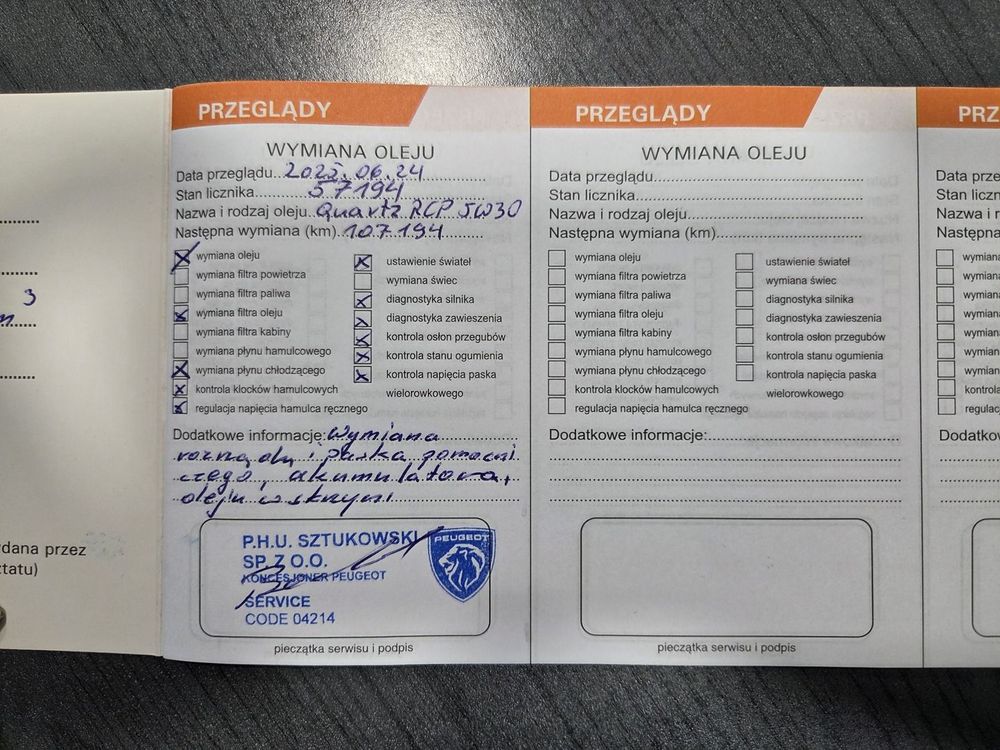 PRZEGLĄDY
WYMIANA OLEJU
Data przeglądu..2025.06.24
Stan licznika..........57194
Nazwa i rodzaj oleju..Quartz RCP 5W30
Następna wymiana (km)..107194
wymiana oleju
wymiana filtra powietrza
wymiana filtra paliwa
wymiana filtra oleju
wymiana filtra kabiny
wymiana płynu hamulcowego
wymiana płynu chłodzącego
kontrola klocków hamulcowych
regulacja napięcia hamulca ręcznego
ustawienie świateł
wymiana świec
diagnostyka silnika
diagnostyka zawieszenia
kontrola osłon przegubów
kontrola stanu ogumienia
kontrola napięcia paska
wielorowkowego
Dodatkowe informacje: Wymiana
rozrządu i paska pomocni
czego, akumulatora,
oleju w skrzyni
P.H.U. SZTUKOWSKI
SP. Z O.O.
KONCESJONER PEUGEOT
SERVICE
CODE 04214
PEUGEOT
pieczątka serwisu i podpis
PRZEGLĄDY
WYMIANA OLEJU
Data przeglądu
Stan licznika
Nazwa i rodzaj oleju
Następna wymiana (km)
wymiana oleju
wymiana filtra powietrza
wymiana filtra paliwa
wymiana filtra oleju
wymiana filtra kabiny
wymiana płynu hamulcowego
wymiana płynu chłodzącego
kontrola klocków hamulcowych
regulacja napięcia hamulca ręcznego
ustawienie świateł
wymiana świec
diagnostyka silnika
diagnostyka zawieszenia
kontrola osłon przegubów
kontrola stanu ogumienia
kontrola napięcia paska
wielorowkowego
Dodatkowe informacje:
pieczątka serwisu i podpis
PRZ
Data prze
Stan liczn
Nazwa i r
Następna
wymiana
wymiana
wymiana
wymiana
wymiana
wymiana
wymiana
kontrola
regulac
Dodatko
3
ydana przez
ztatu)